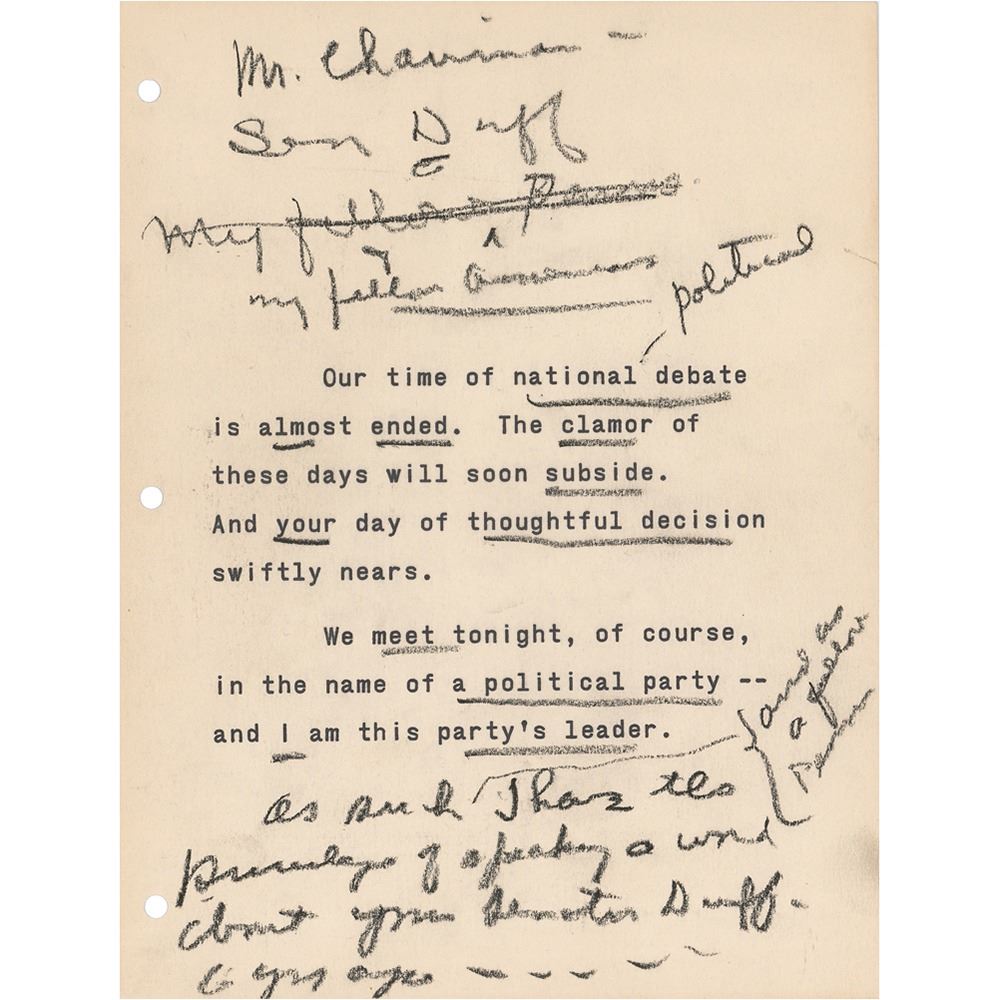 Mr. Chairman —
Sen Duff
My fellow Penns.
my fellow Americans
political
Our time of national debate
is almost ended. The clamor of
these days will soon subside.
And your day of thoughtful decision
swiftly nears.
We meet tonight, of course,
in the name of a political party --
and I am this party's leader.
and as
a fellow
As such I have the
privilege of speaking a word
about your Senator Duff.
6 yrs ago - - - - -